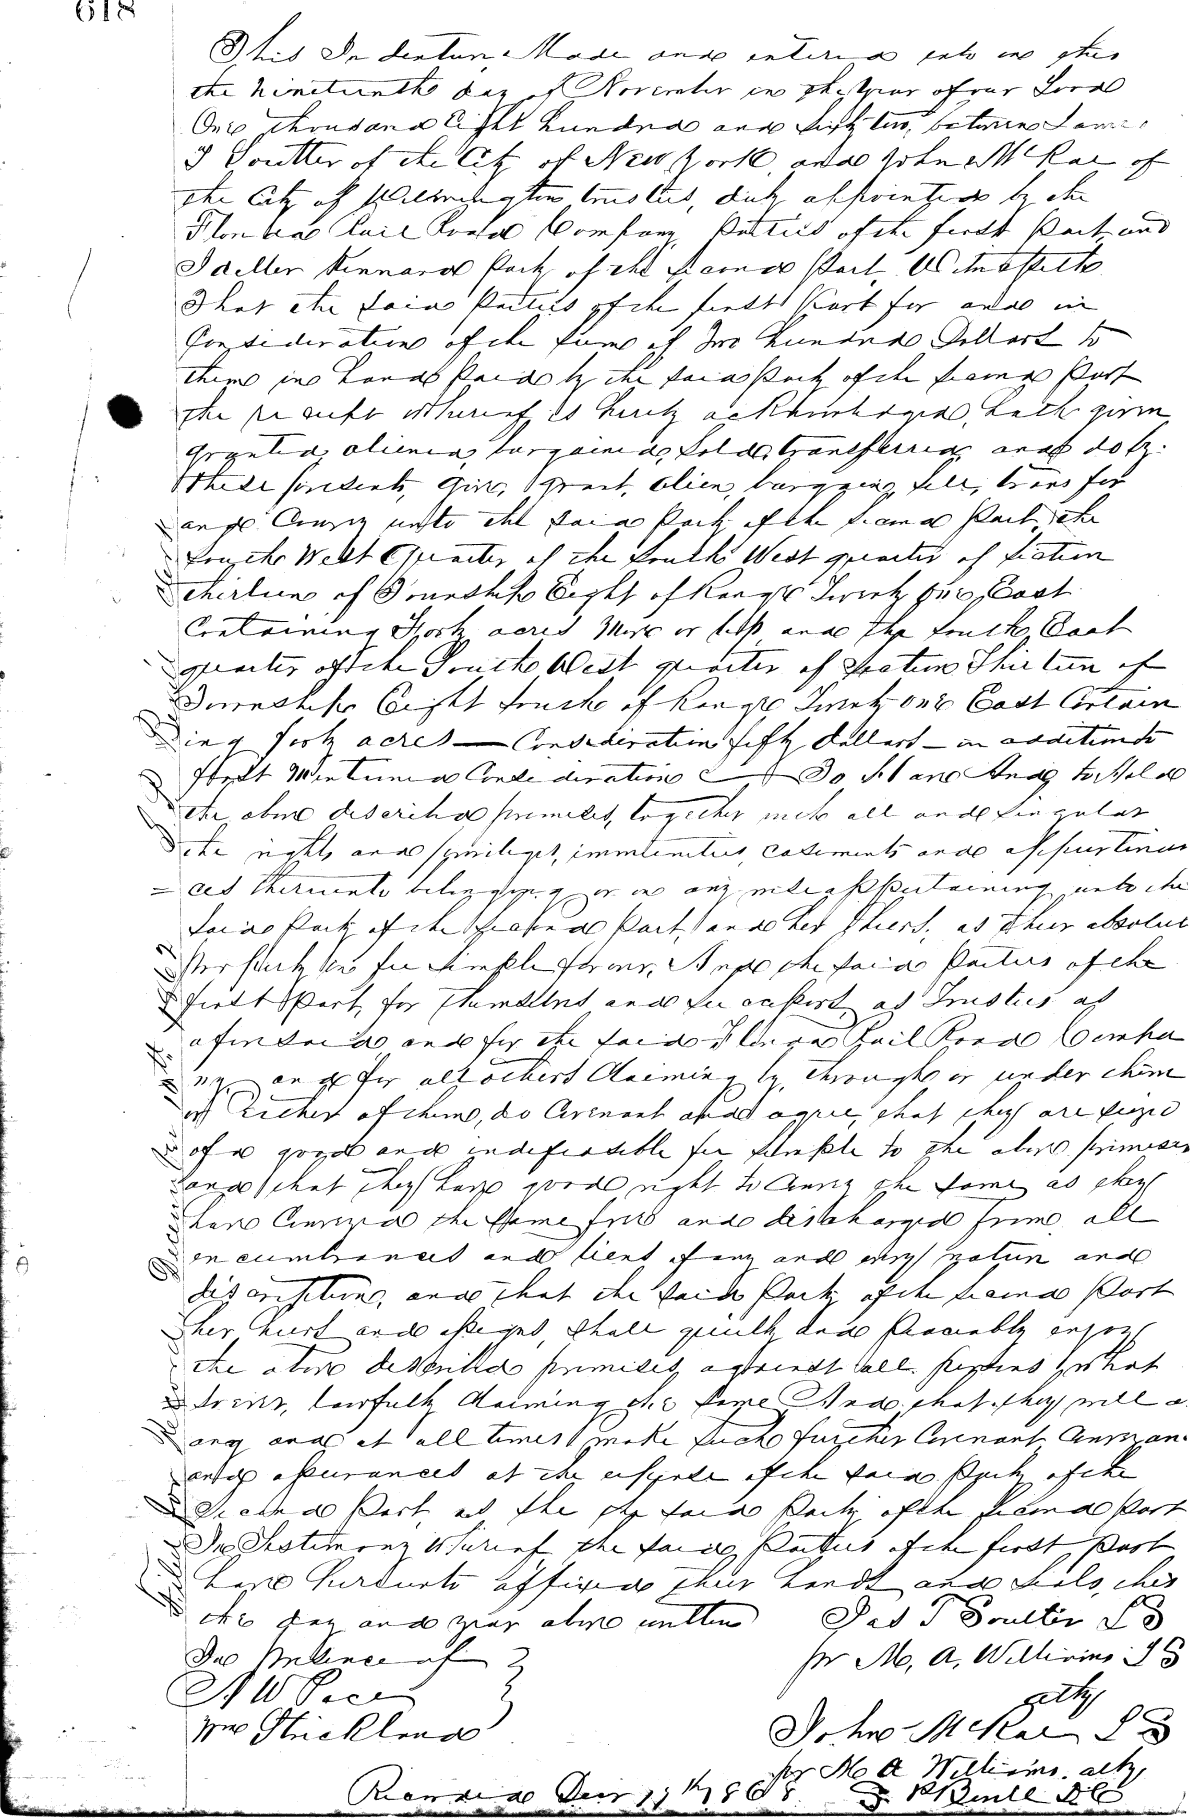 618
This Indenture Made and entered into in this
the Nineteenth day of November in the Year of our Lord
One thousand Eight hundred and sixty two, between James
T Soutter of the City of New York, and John McRae of
the City of Wilmington trustees, duly appointed by the
Florida Rail Road Company, Parties of the first Part and
Kennard Party of the second Part, Witnesseth
That the said Parties of the first Part for and in
Consideration of the sum of Two hundred Dollars to
them in hand Paid by the said Party of the second Part
the receipt whereof is hereby acknowledged, hath given
granted, aliened, bargained, sold, transferred and do by
these presents, Give, grant, alien, bargain, sell, transfer
and Convey unto the said Party of the second Part, the
South West Quarter of the South West quarter of section
thirteen of Township Eight of Range Twenty one, East
Containing Forty acres More or less and the South East
quarter of the South West quarter of section Thirteen of
Township Eight South of Range Twenty one East Contain
ing forty acres — Consideration fifty dollars — in addition to
first Mentioned Consideration To Have And to Hold
the above described premises, together with all and singular
the rights and privileges, immunities, easements and appurtenan
= ces thereunto belonging or in any wise appertaining unto the
said Party of the second Part, and her heirs, as their absolute
Property in fee simple forever, And the said Parties of the
first Part, for themselves and successors as Trustees as
aforesaid, and for the said Florida Rail Road Compa
ny and for all others Claiming by, through or under them
or Either of them, do Covenant and agree, that they are seized
of a good and indefeasible fee simple to the above premises
and that they have good right to Convey the same, as they
have Conveyed the same free and discharged from all
encumbrances and liens of any and every nature and
discription, and that the said Party of the second Part
her heirs and assigns, shall quietly and Peaceably enjoy
the above described premises, against all persons what
soever, lawfully Claiming the same And that they will a
any and at all times make such further Covenant Conveyan
and assurances at the expense of the said Party of the
second Part, as the said Party of the second Part
In Testimony Whereof, the said Parties of the first Part
have hereunto affixed their hands and seals, this
the day and year above written Jas T Soutter LS
In Presence of pr M, A, Williams LS
A W Pace atty
Wm Strickland John McRae LS
pr M A Williams. atty
Recorded Decr
Filed for Record December 1862